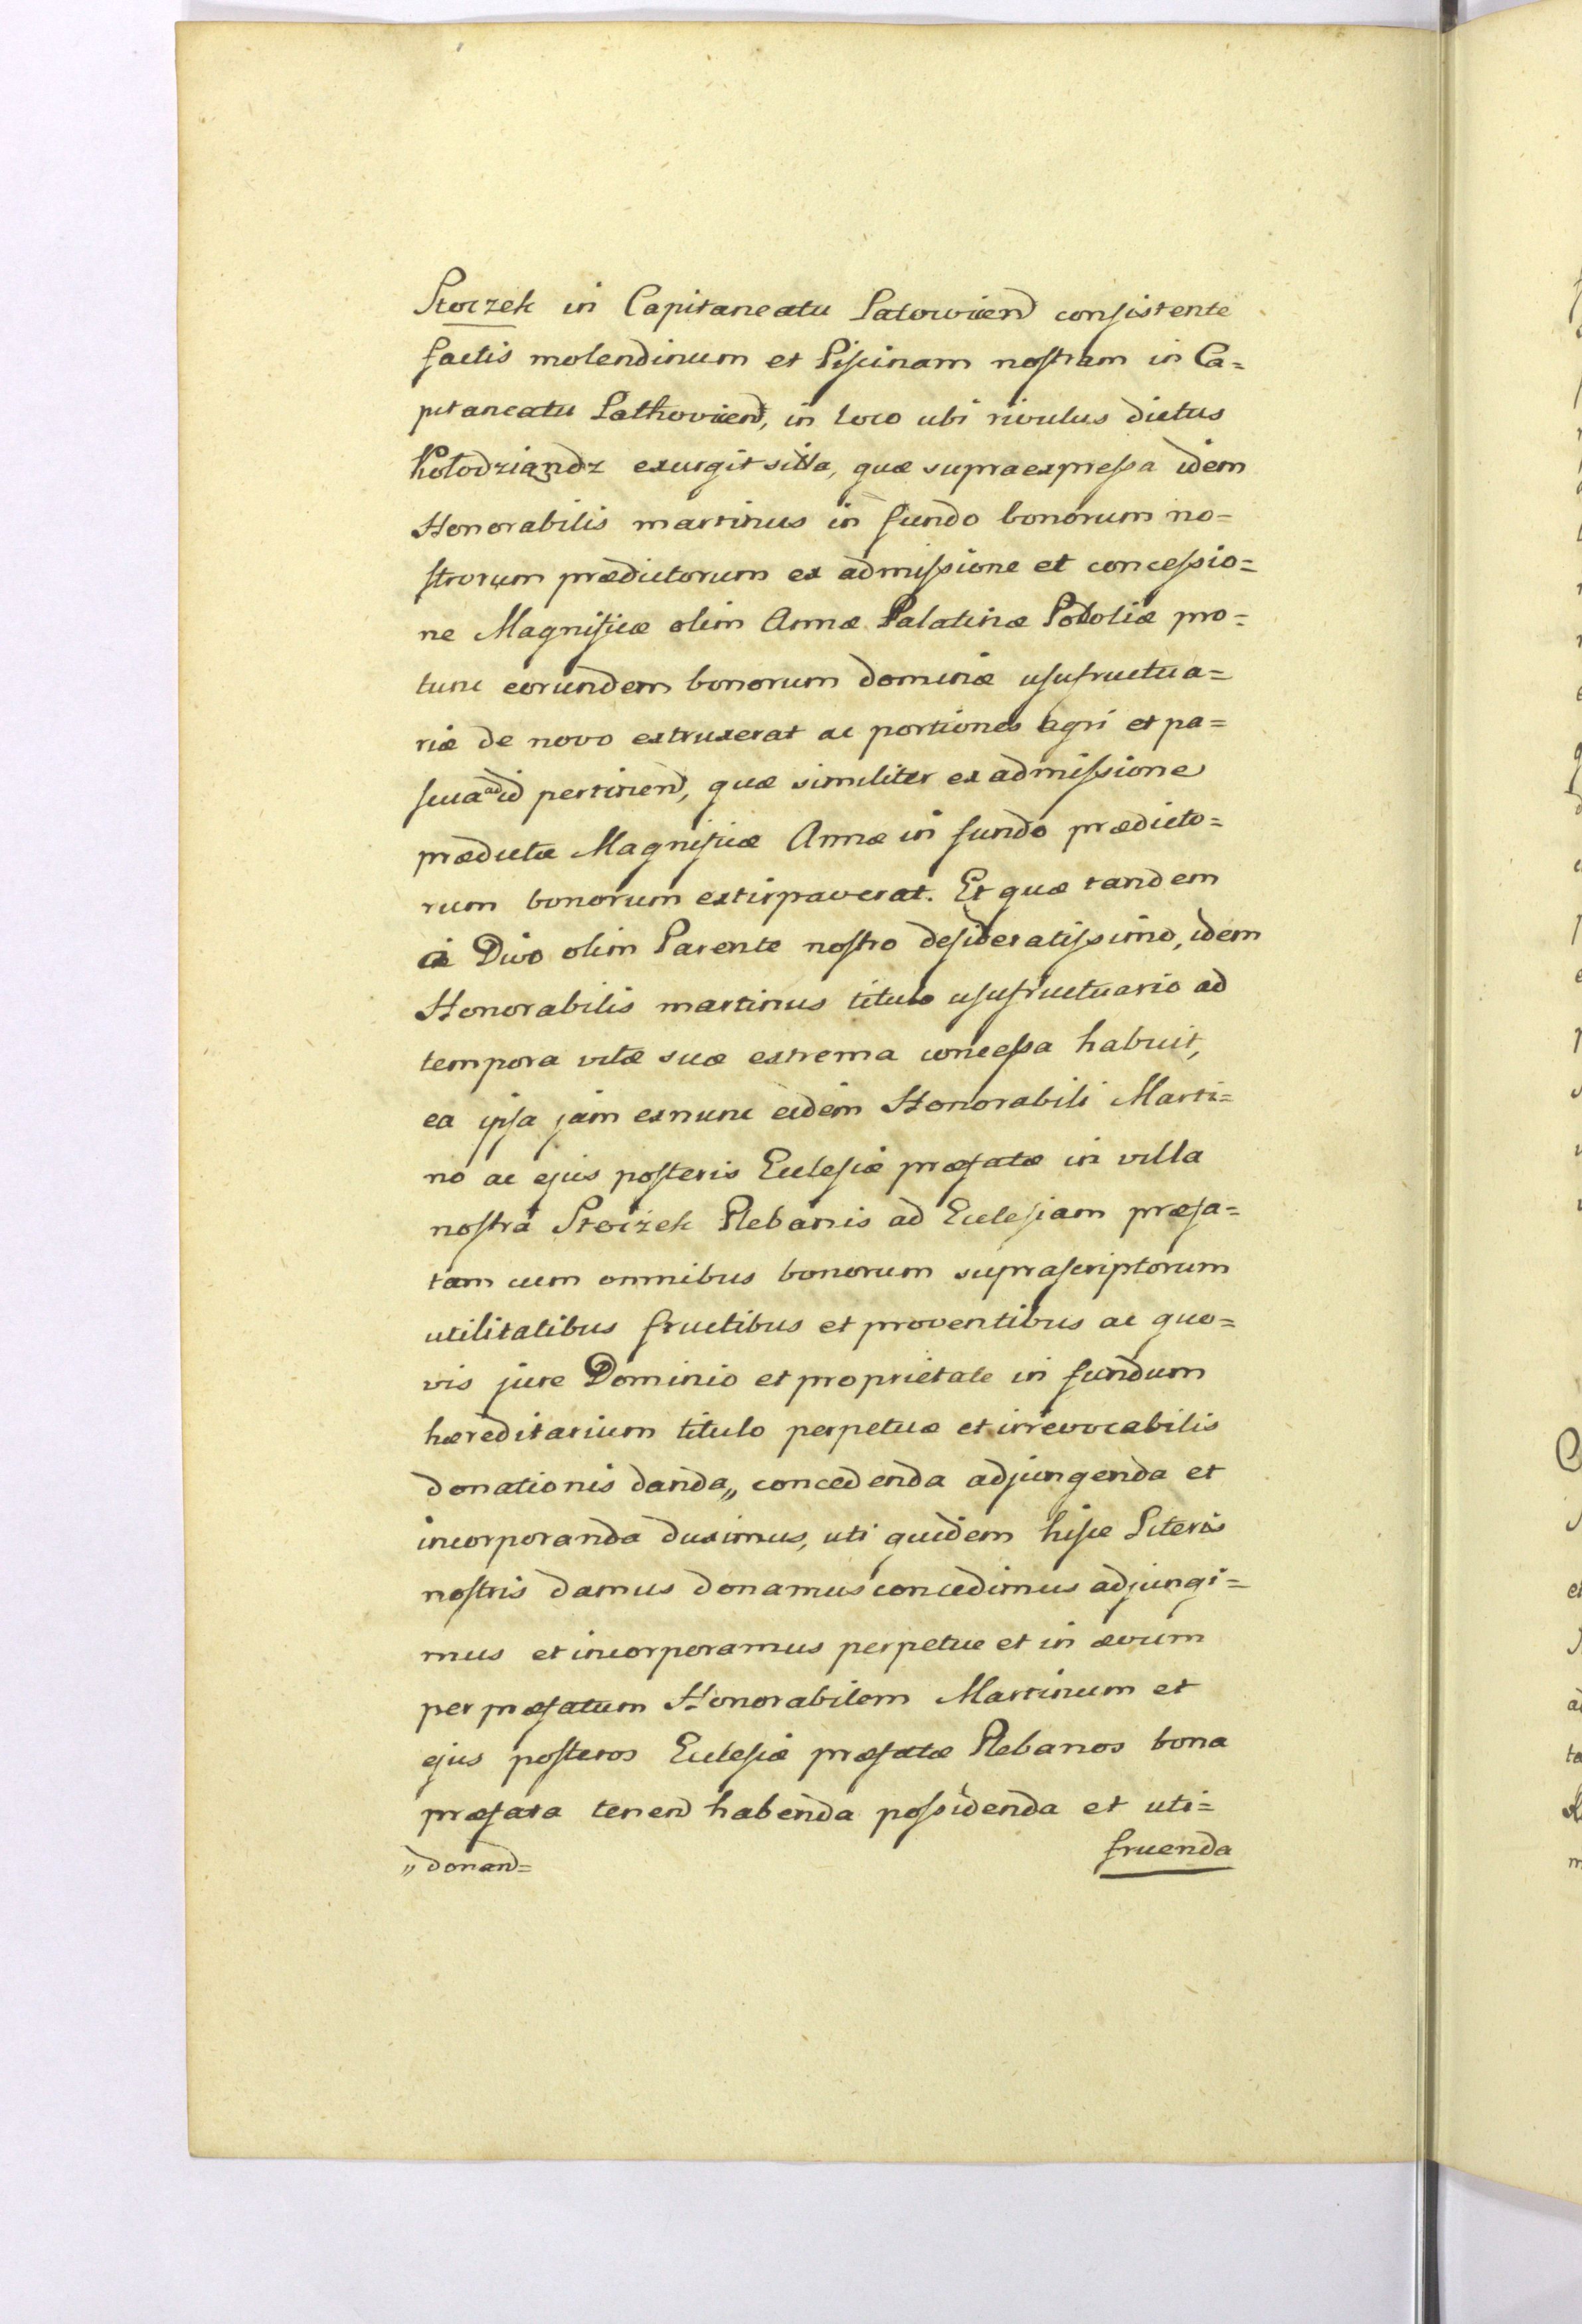 Stoczek in Capitaneatu Latowicen consistente
factis molendinum et Piscinam nostram in Ca=
pitaneatu Lathovicen, in loco ubi rivulus dictus
Kołodziandz exurgit sitta, quæ supraexpressa idem
Honorabilis martinus in fundo bonorum no=
strorum prædictorum ex admissione et concessio=
ne Magnificæ olim Annæ Palatinæ Podoliæ pro=
tunc eorundem bonorum dominæ usufructua=
riæ de novo extruxerat ac portiones agri et pa=
scua ad id pertinen, quæ similiter ex admissione
prædictæ Magnificæ Annæ in fundo prædicto=
rum bonorum extirpaverat. Et quæ tandem
a Divo olim Parente nostro desideratissimo, idem
Honorabilis martinus titulo usufructuario ad
tempora vitæ suæ extrema concessa habuit,
ea ipsa jam exnunc eidem Honorabili Marti=
no ac ejus posteris Eclesiæ præfatæ in villa
nostra Stoczek Plebanis ad Eclesiam præfa=
tam cum omnibus bonorum suprascriptorum
utilitatibus fructibus et proventibus ac quo=
vis jure Dominio et proprietate in fundum
hæreditarium titulo perpetuæ et irrevocabilis
donationis danda,, concedenda adjungenda et
incorporanda duximus, uti quidem hisce Literis
nostris damus donamus concedimus adjungi=
mus et incorporamus perpetue et in ævum
per præfatum Honorabilem Martinum et
ejus posteros Eclesiæ præfatæ Plebanos bona
præfata tenen habenda possidenda et uti=
fruenda
,, donand=